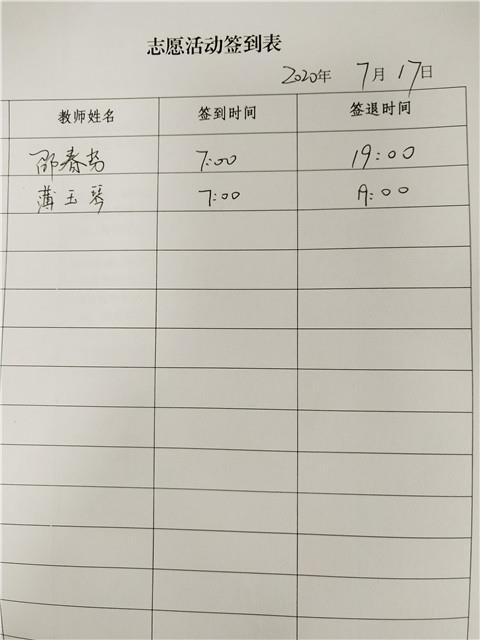 志愿活动签到表
2020年 7月17日
教师姓名 签到时间 签退时间
邵春 7:00 19:00
薄玉琴 7:00 :00